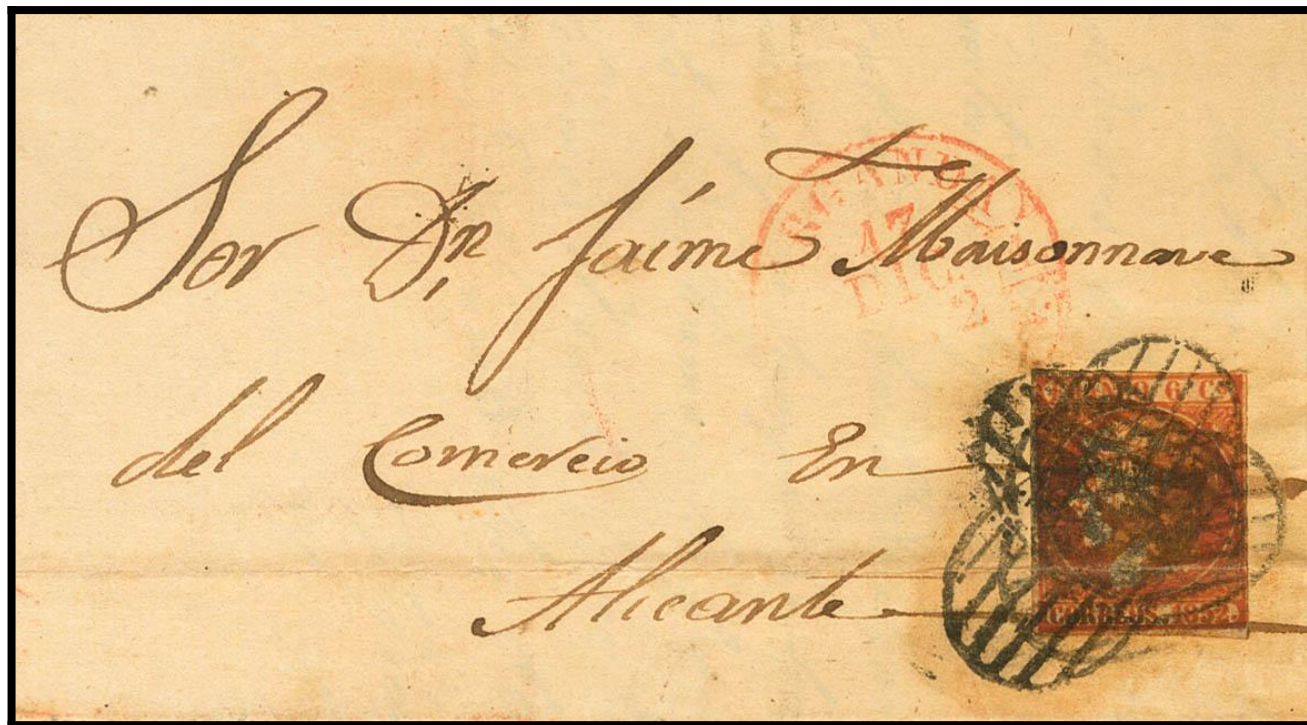 Sor Dn. Jaime Maisonnave
del Comercio En
Alicante
17
DIC
2
6 Cs
CORREOS. 1852